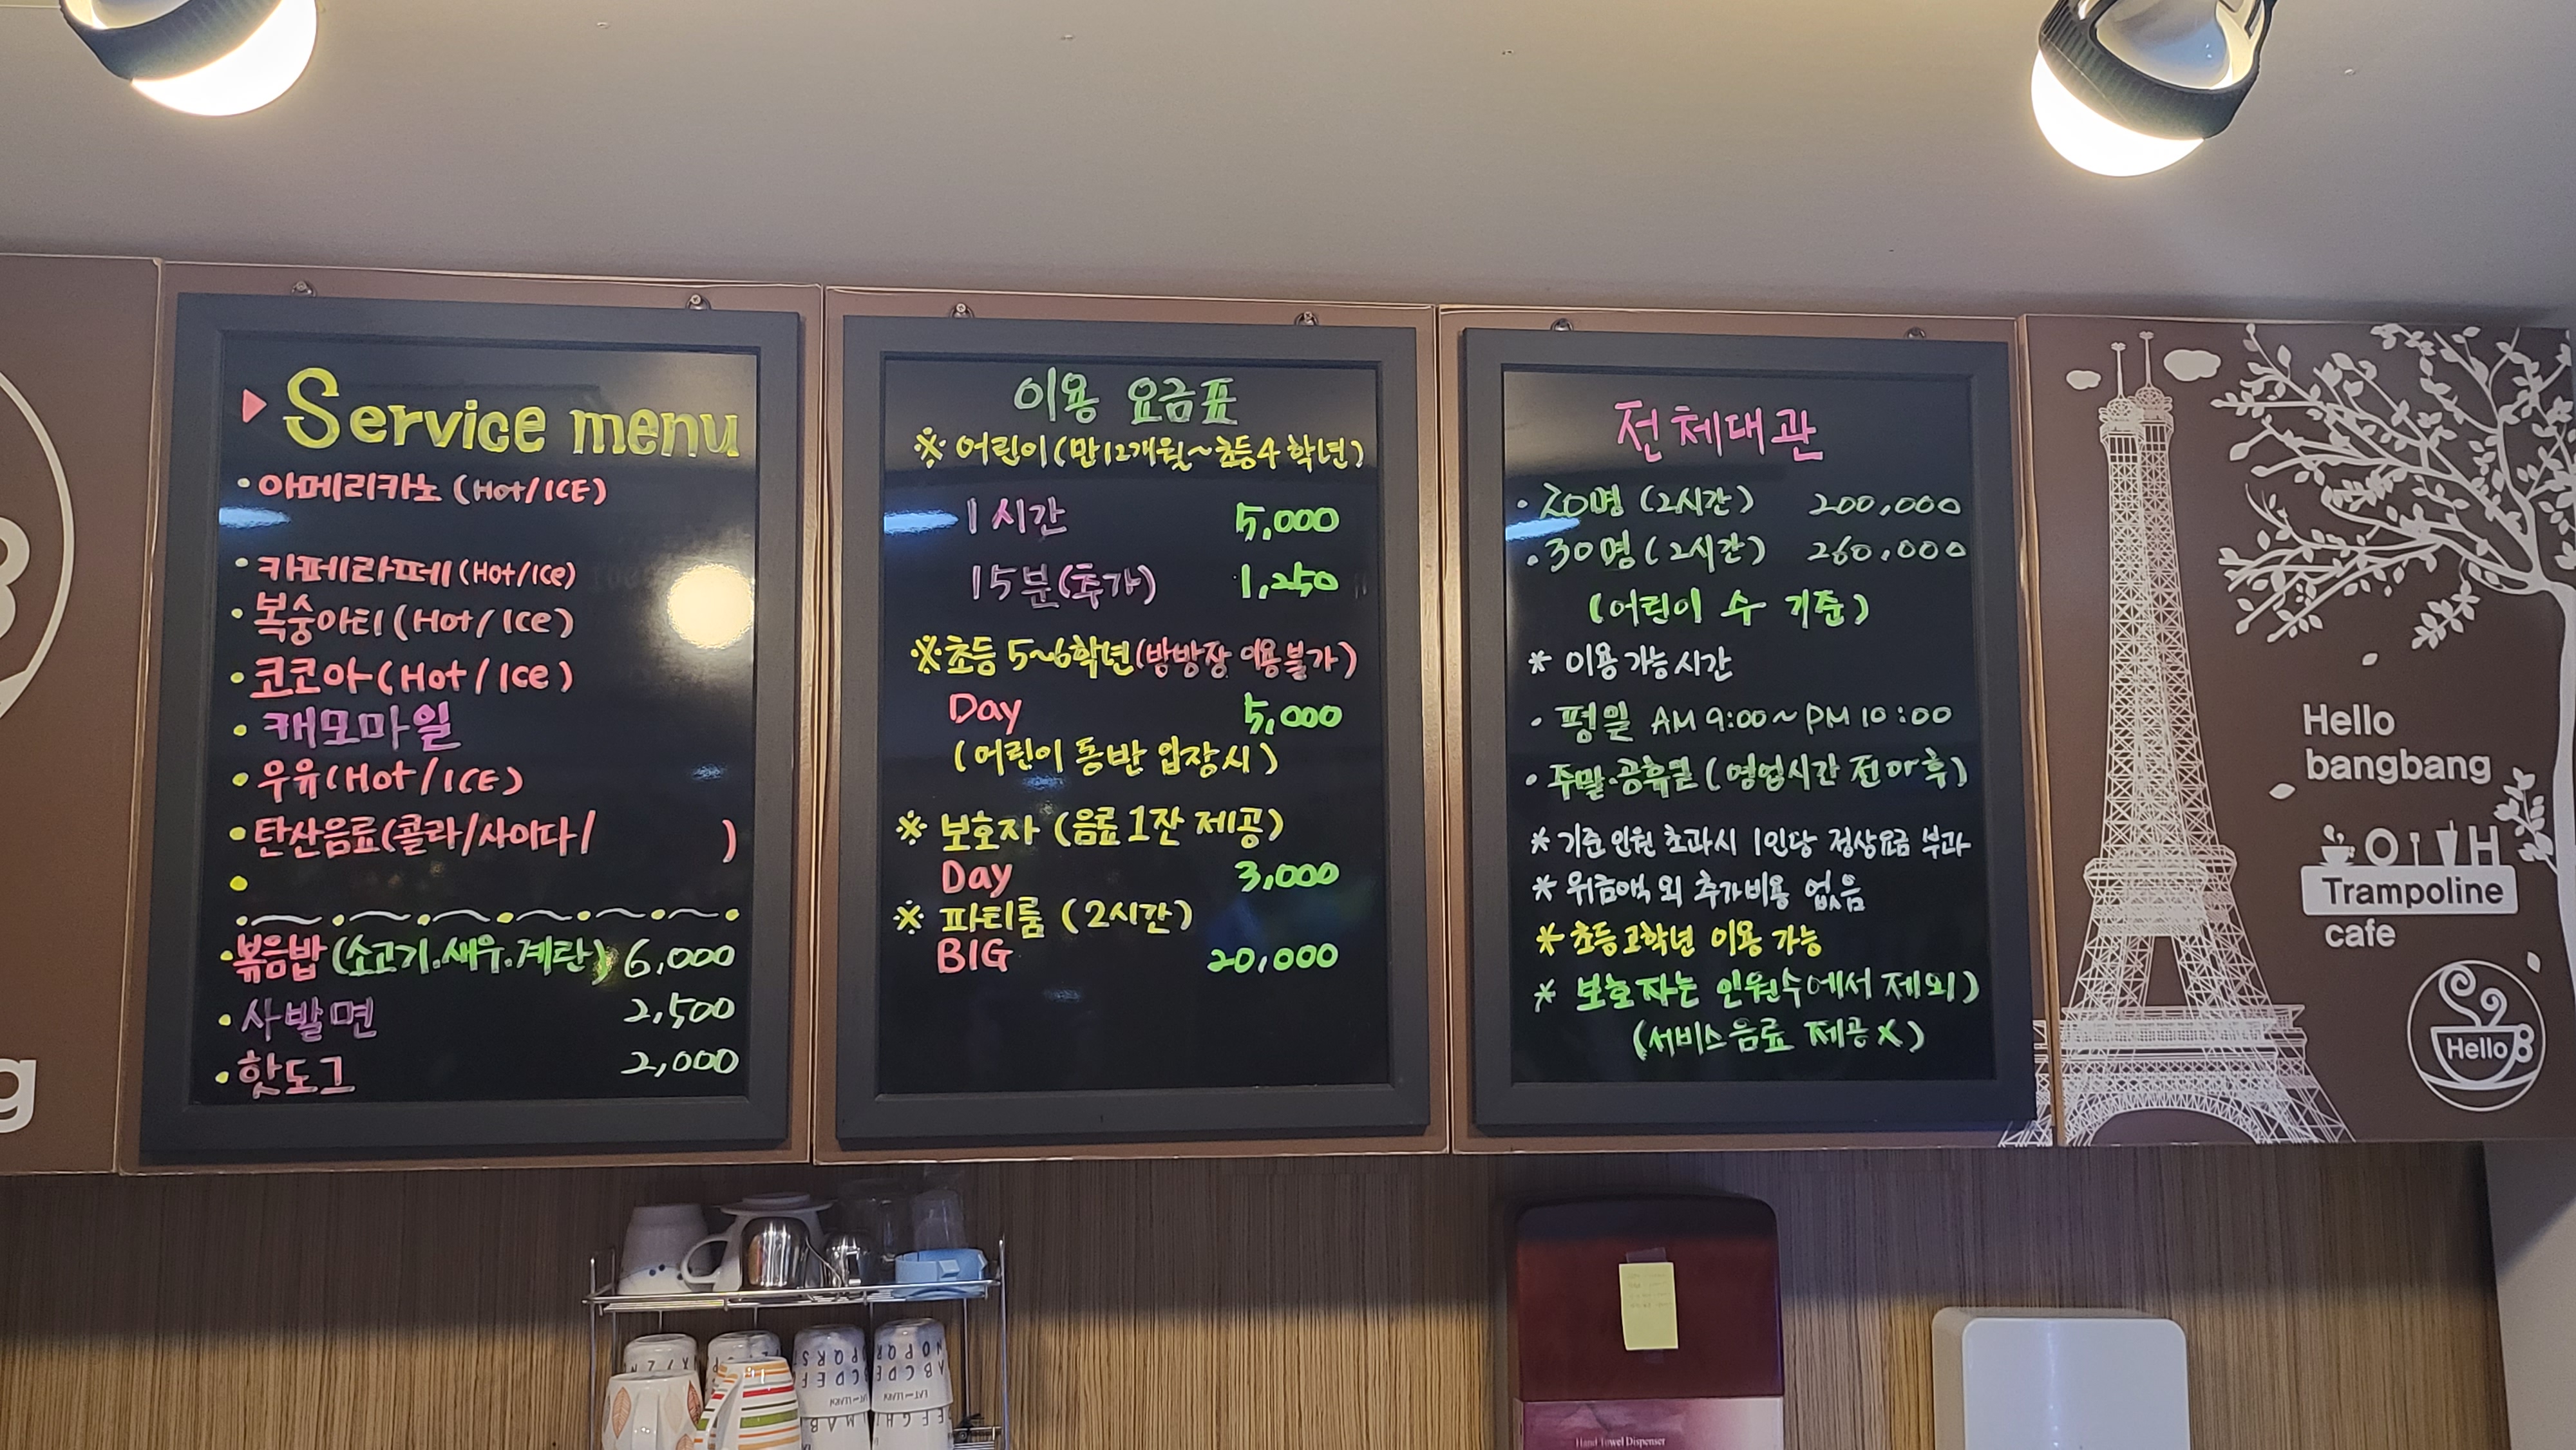 Service menu
• 아메리카노 (Hot/ICE)
• 카페라떼 (Hot/Ice)
• 복숭아티 (Hot/Ice)
• 코코아 (Hot/Ice)
• 캐모마일
• 우유 (Hot/ICE)
• 탄산음료(콜라/사이다/ )
•
• 볶음밥 (소고기.새우.계란) 6,000
• 사발면 2,500
• 핫도그 2,000
이용 요금표
※ 어린이 (만12개월~초등4학년)
1시간 5,000
15분(추가) 1,250
※ 초등 5~6학년(방방장 이용불가)
Day 5,000
(어린이 동반 입장시)
※ 보호자 (음료 1잔 제공)
Day 3,000
※ 파티룸 (2시간)
BIG 20,000
전체대관
• 20명 (2시간) 200,000
• 30명 (2시간) 260,000
(어린이 수 기준)
* 이용가능시간
• 평일 AM 9:00~PM 10:00
• 주말.공휴일 (영업시간 전 or 후)
* 기준인원 초과시 1인당 정상요금 부과
* 위금액 외 추가비용 없음
* 초등고학년 이용 가능
* 보호자는 인원수에서 제외)
(서비스음료 제공 X)
Hello
bangbang
Trampoline
cafe
Hello
g
Hand Towel Dispenser